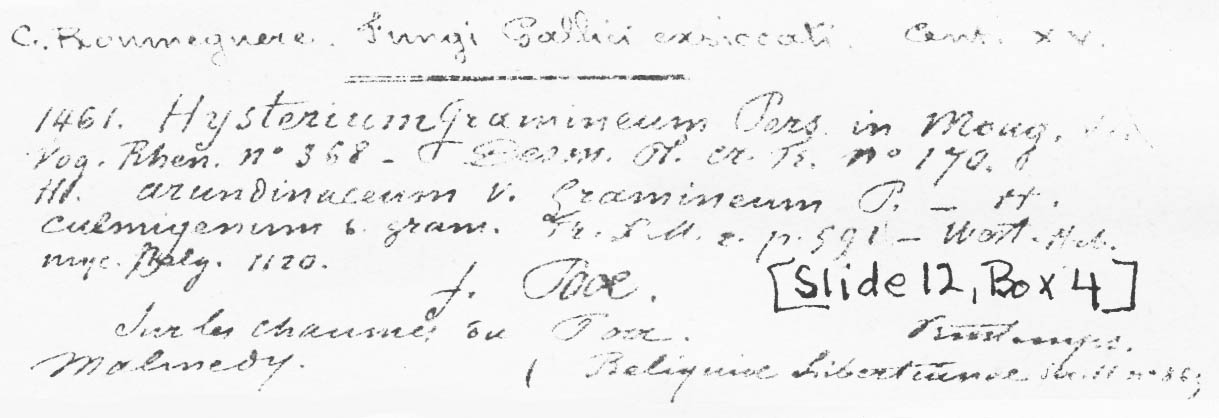 C. Roumeguere. Fungi Gallici exsiccati. Cent. XV.
1461. Hysterium Gramineum Pers. in Moug.
Vog. Rhen. nº 368 – Desm. Pl. cr. Fr. nº 170.
H. arundinaceum v. Gramineum P. – H.
culmigenum b. gram. Fr. S.M. 2. p. 591 – West. Hb.
myc. Belg. 1120.
f. Poae.
[Slide 12, Box 4]
Sur les chaumes du Poa. Printemps.
Malmedy. ( Reliquiae Libertianae